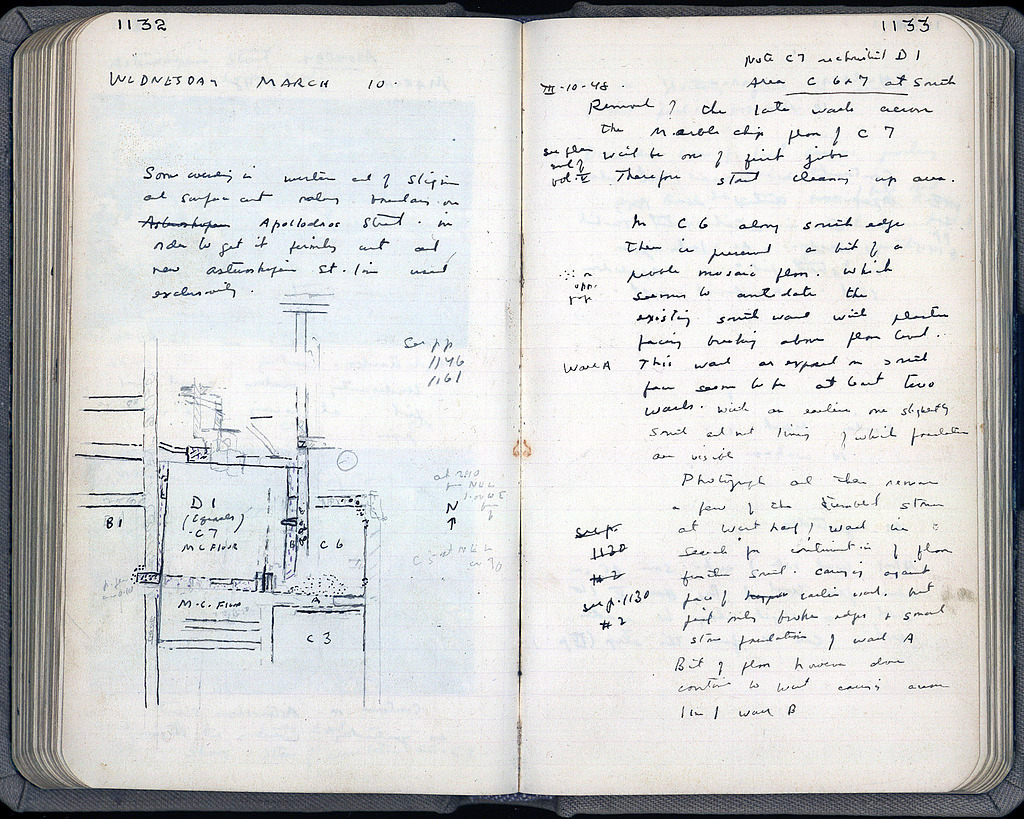 1132
WEDNESDAY MARCH 10.
Some in western end of
at surface
Apollodoros Street. in
order to get it firmly and
new St. line used
exclusively.
See pp
1146
1161
N
B1
D1
(Equals)
C7
M C FLOOR
C6
B
A
M.C. Floor
C3
1133
Note C7 D1
Area C 6 & 7 at South
III-10-48.
Removal of the late walls across
the Marble chip floor of C 7
see plan
end of
vol. V
will be one of first jobs
Therefore start cleaning up area.
In C6 along south edge
there is present a bit of a
pebble mosaic floor. Which
on
opp.
page
seems to antedate the
existing south wall with plaster
facing breaking above floor level.
Wall A
This wall as exposed on south
face seems to be at least two
walls. with an earlier one slightly
south and not lining of which foundation
are visible
Photograph and then remove
a few of the tumbled stones
see p.
1130
# 2
at west half of wall in
search for continuation of floor
further south. against
see p. 1130
# 2
face of earlier wall. but
find only broken edge & small
stone foundation of wall A
Bit of floor however does
continue to west across
line of wall B